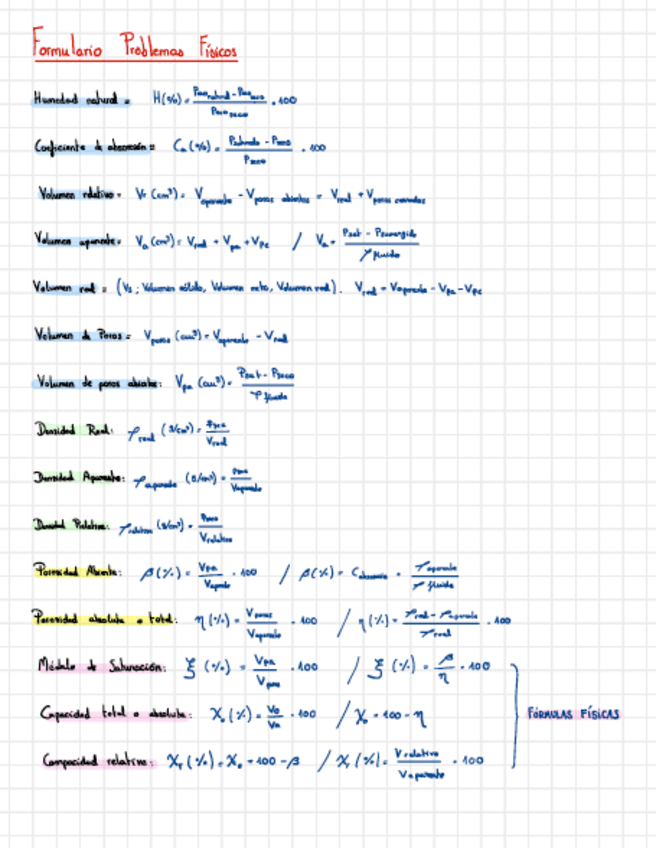 Formulario Problemas Físicos
Humedad natural = H(%) = (Peso natural - Peso seco) / Peso seco · 100
Coeficiente de absorción = Ca (%) = (Psaturado - Pseco) / Pseco · 100
Volumen relativo = Vr (cm³) = Vaparente - Vporos abiertos = Vreal + Vporos cerrados
Volumen aparente = Va (cm³) = Vreal + Vpa + Vpc / Va = (Psat - Psumergido) / ρ fluido
Volumen real = (Vs ; Volumen sólido, Volumen neto, Volumen real). Vreal = Vaparente - Vpa - Vpc
Volumen de Poros = Vporos (cm³) = Vaparente - Vreal
Volumen de poros abiertos: Vpa (cm³) = (Psat - Pseco) / ρ fluido
Densidad Real: ρ real (g/cm³) = Pseco / Vreal
Densidad Aparente: ρ aparente (g/cm³) = Pseco / Vaparente
Densidad Relativa: ρ relativa (g/cm³) = Pseco / Vrelativo
Porosidad Abierta: β (%) = Vpa / Vaparente · 100 / β (%) = Cabsorción · ρ aparente / ρ fluido
Porosidad absoluta o total: η (%) = Vporos / Vaparente · 100 / η (%) = (ρ real - ρ aparente) / ρ real · 100
Módulo de Saturación: ξ (%) = Vpa / Vporos · 100 / ξ (%) = β / η · 100
Capacidad total o absoluta: X₀ (%) = · 100 / X₀ = 100 - η
Compacidad relativa: Xr (%) = X₀ = 100 - β / Xr (%) = Vrelativo / Vaparente · 100
FÓRMULAS FÍSICAS